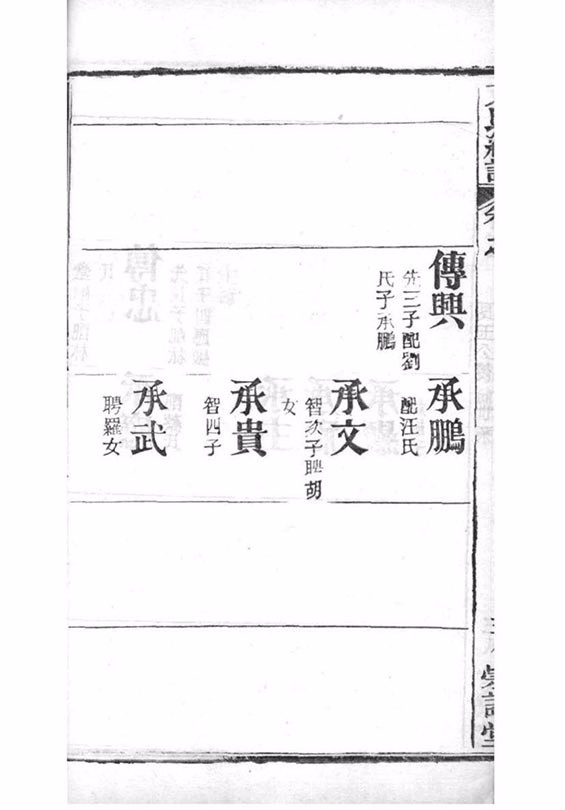 傳興
先三子配劉
氏子承鵬
承鵬
配汪氏
承文
智次子聘胡
女
承貴
智四子
承武
聘羅女